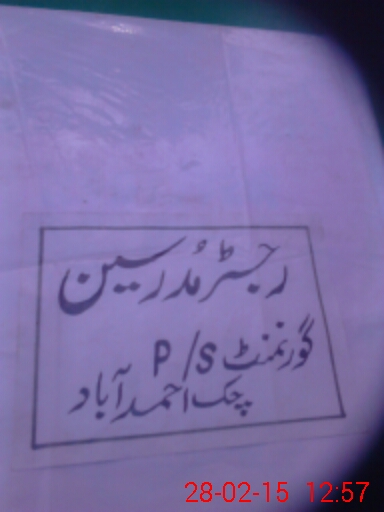 رجسٹر مُدرسین
گورنمنٹ P/S
چک احمد آباد
28-02-15 12:57